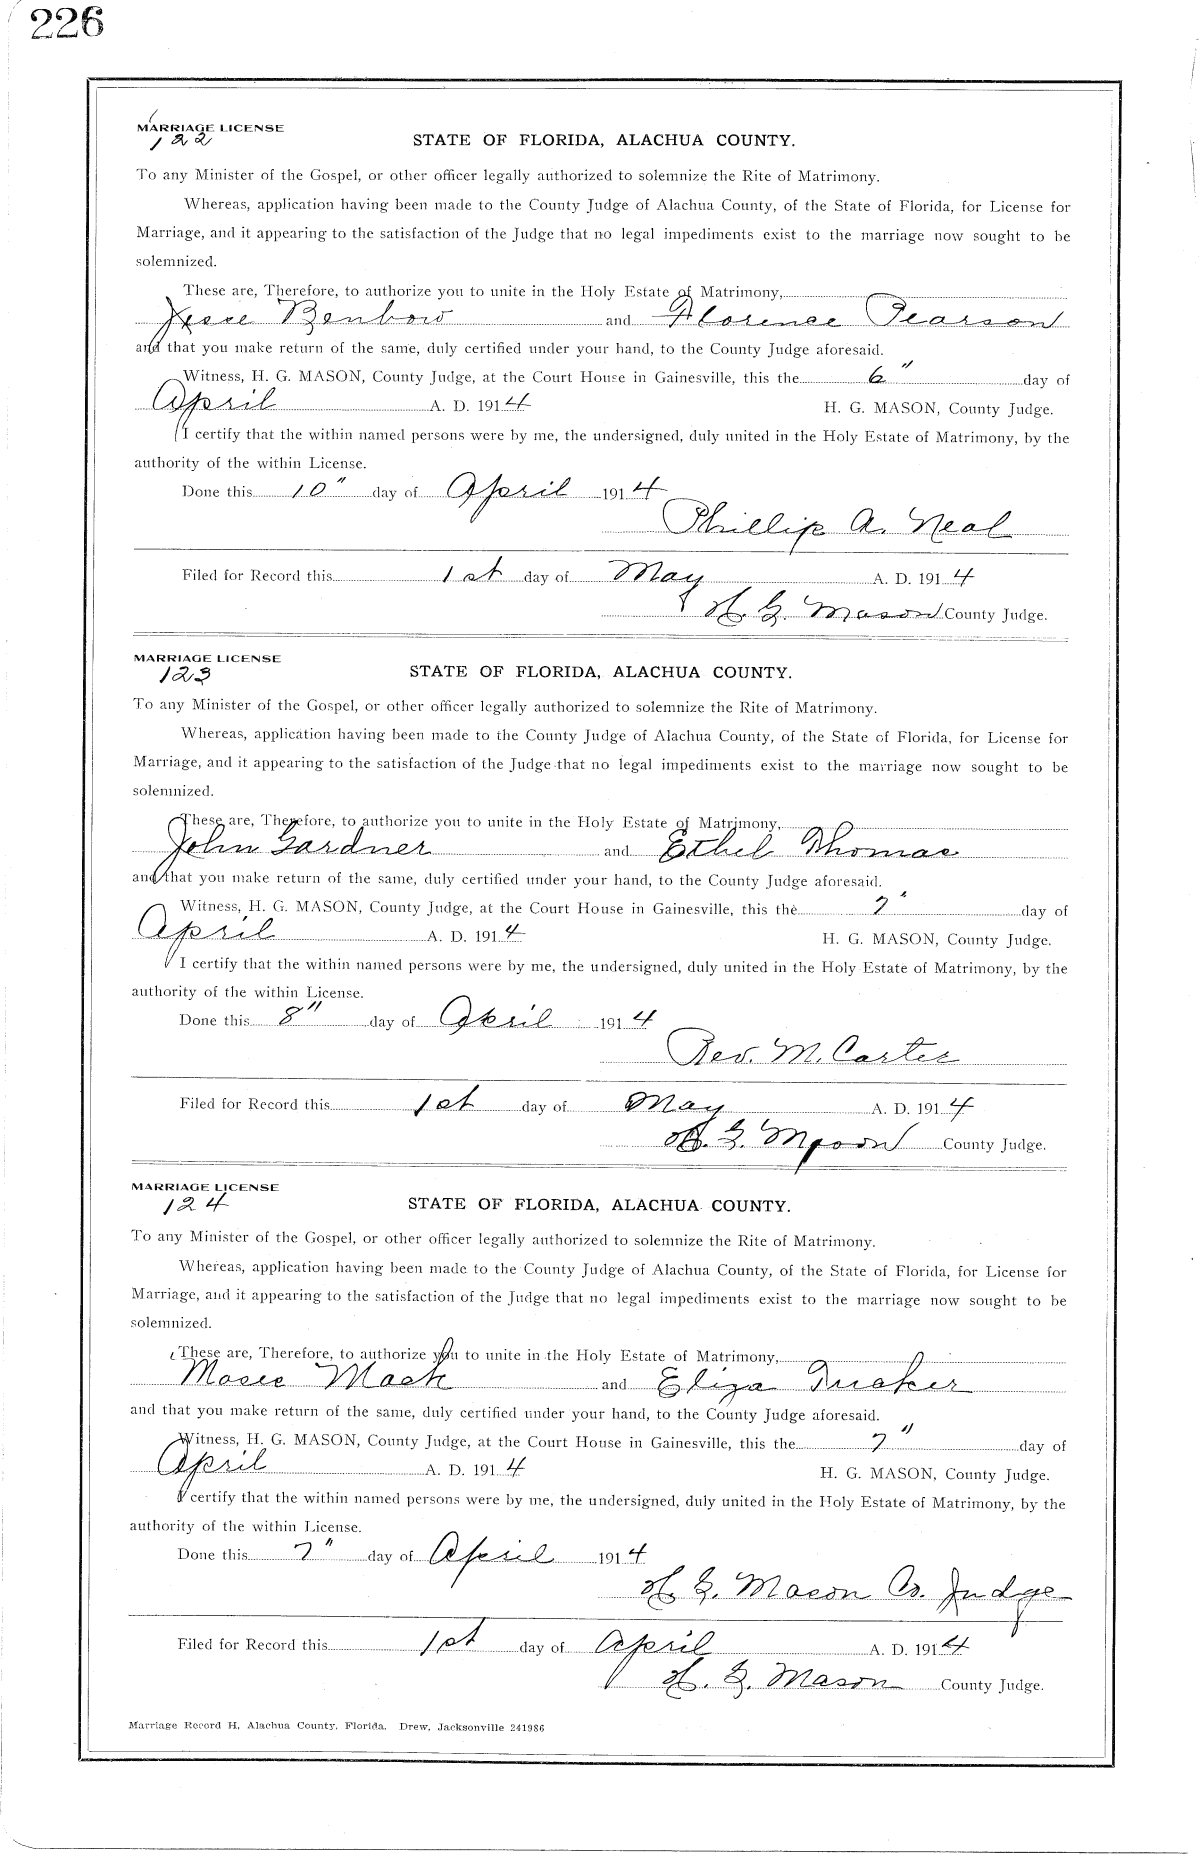 226
MARRIAGE LICENSE
122
STATE OF FLORIDA, ALACHUA COUNTY.
To any Minister of the Gospel, or other officer legally authorized to solemnize the Rite of Matrimony.
Whereas, application having been made to the County Judge of Alachua County, of the State of Florida, for License for
Marriage, and it appearing to the satisfaction of the Judge that no legal impediments exist to the marriage now sought to be
solemnized.
These are, Therefore, to authorize you to unite in the Holy Estate of Matrimony,
Jesse Benbow and Florence Pearson
and that you make return of the same, duly certified under your hand, to the County Judge aforesaid.
Witness, H. G. MASON, County Judge, at the Court House in Gainesville, this the 6" day of
April A. D. 1914 H. G. MASON, County Judge.
I certify that the within named persons were by me, the undersigned, duly united in the Holy Estate of Matrimony, by the
authority of the within License.
Done this 10" day of April 1914
Phillip A. Neal
Filed for Record this 1st day of May A. D. 1914
H. G. Mason County Judge.
MARRIAGE LICENSE
123
STATE OF FLORIDA, ALACHUA COUNTY.
To any Minister of the Gospel, or other officer legally authorized to solemnize the Rite of Matrimony.
Whereas, application having been made to the County Judge of Alachua County, of the State of Florida, for License for
Marriage, and it appearing to the satisfaction of the Judge that no legal impediments exist to the marriage now sought to be
solemnized.
These are, Therefore, to authorize you to unite in the Holy Estate of Matrimony,
John Gardner and Ethel Thomas
and that you make return of the same, duly certified under your hand, to the County Judge aforesaid.
Witness, H. G. MASON, County Judge, at the Court House in Gainesville, this the 7" day of
April A. D. 1914 H. G. MASON, County Judge.
I certify that the within named persons were by me, the undersigned, duly united in the Holy Estate of Matrimony, by the
authority of the within License.
Done this 8" day of April 1914
Rev. M. Carter
Filed for Record this 1st day of May A. D. 1914
H. G. Mason County Judge.
MARRIAGE LICENSE
124
STATE OF FLORIDA, ALACHUA COUNTY.
To any Minister of the Gospel, or other officer legally authorized to solemnize the Rite of Matrimony.
Whereas, application having been made to the County Judge of Alachua County, of the State of Florida, for License for
Marriage, and it appearing to the satisfaction of the Judge that no legal impediments exist to the marriage now sought to be
solemnized.
These are, Therefore, to authorize you to unite in the Holy Estate of Matrimony,
Moses Mack and Eliza Tucker
and that you make return of the same, duly certified under your hand, to the County Judge aforesaid.
Witness, H. G. MASON, County Judge, at the Court House in Gainesville, this the 7" day of
April A. D. 1914 H. G. MASON, County Judge.
I certify that the within named persons were by me, the undersigned, duly united in the Holy Estate of Matrimony, by the
authority of the within License.
Done this 7" day of April 1914
H. G. Mason Co. Judge
Filed for Record this 1st day of April A. D. 1914
H. G. Mason County Judge.
Marriage Record H, Alachua County, Florida. Drew, Jacksonville 241986